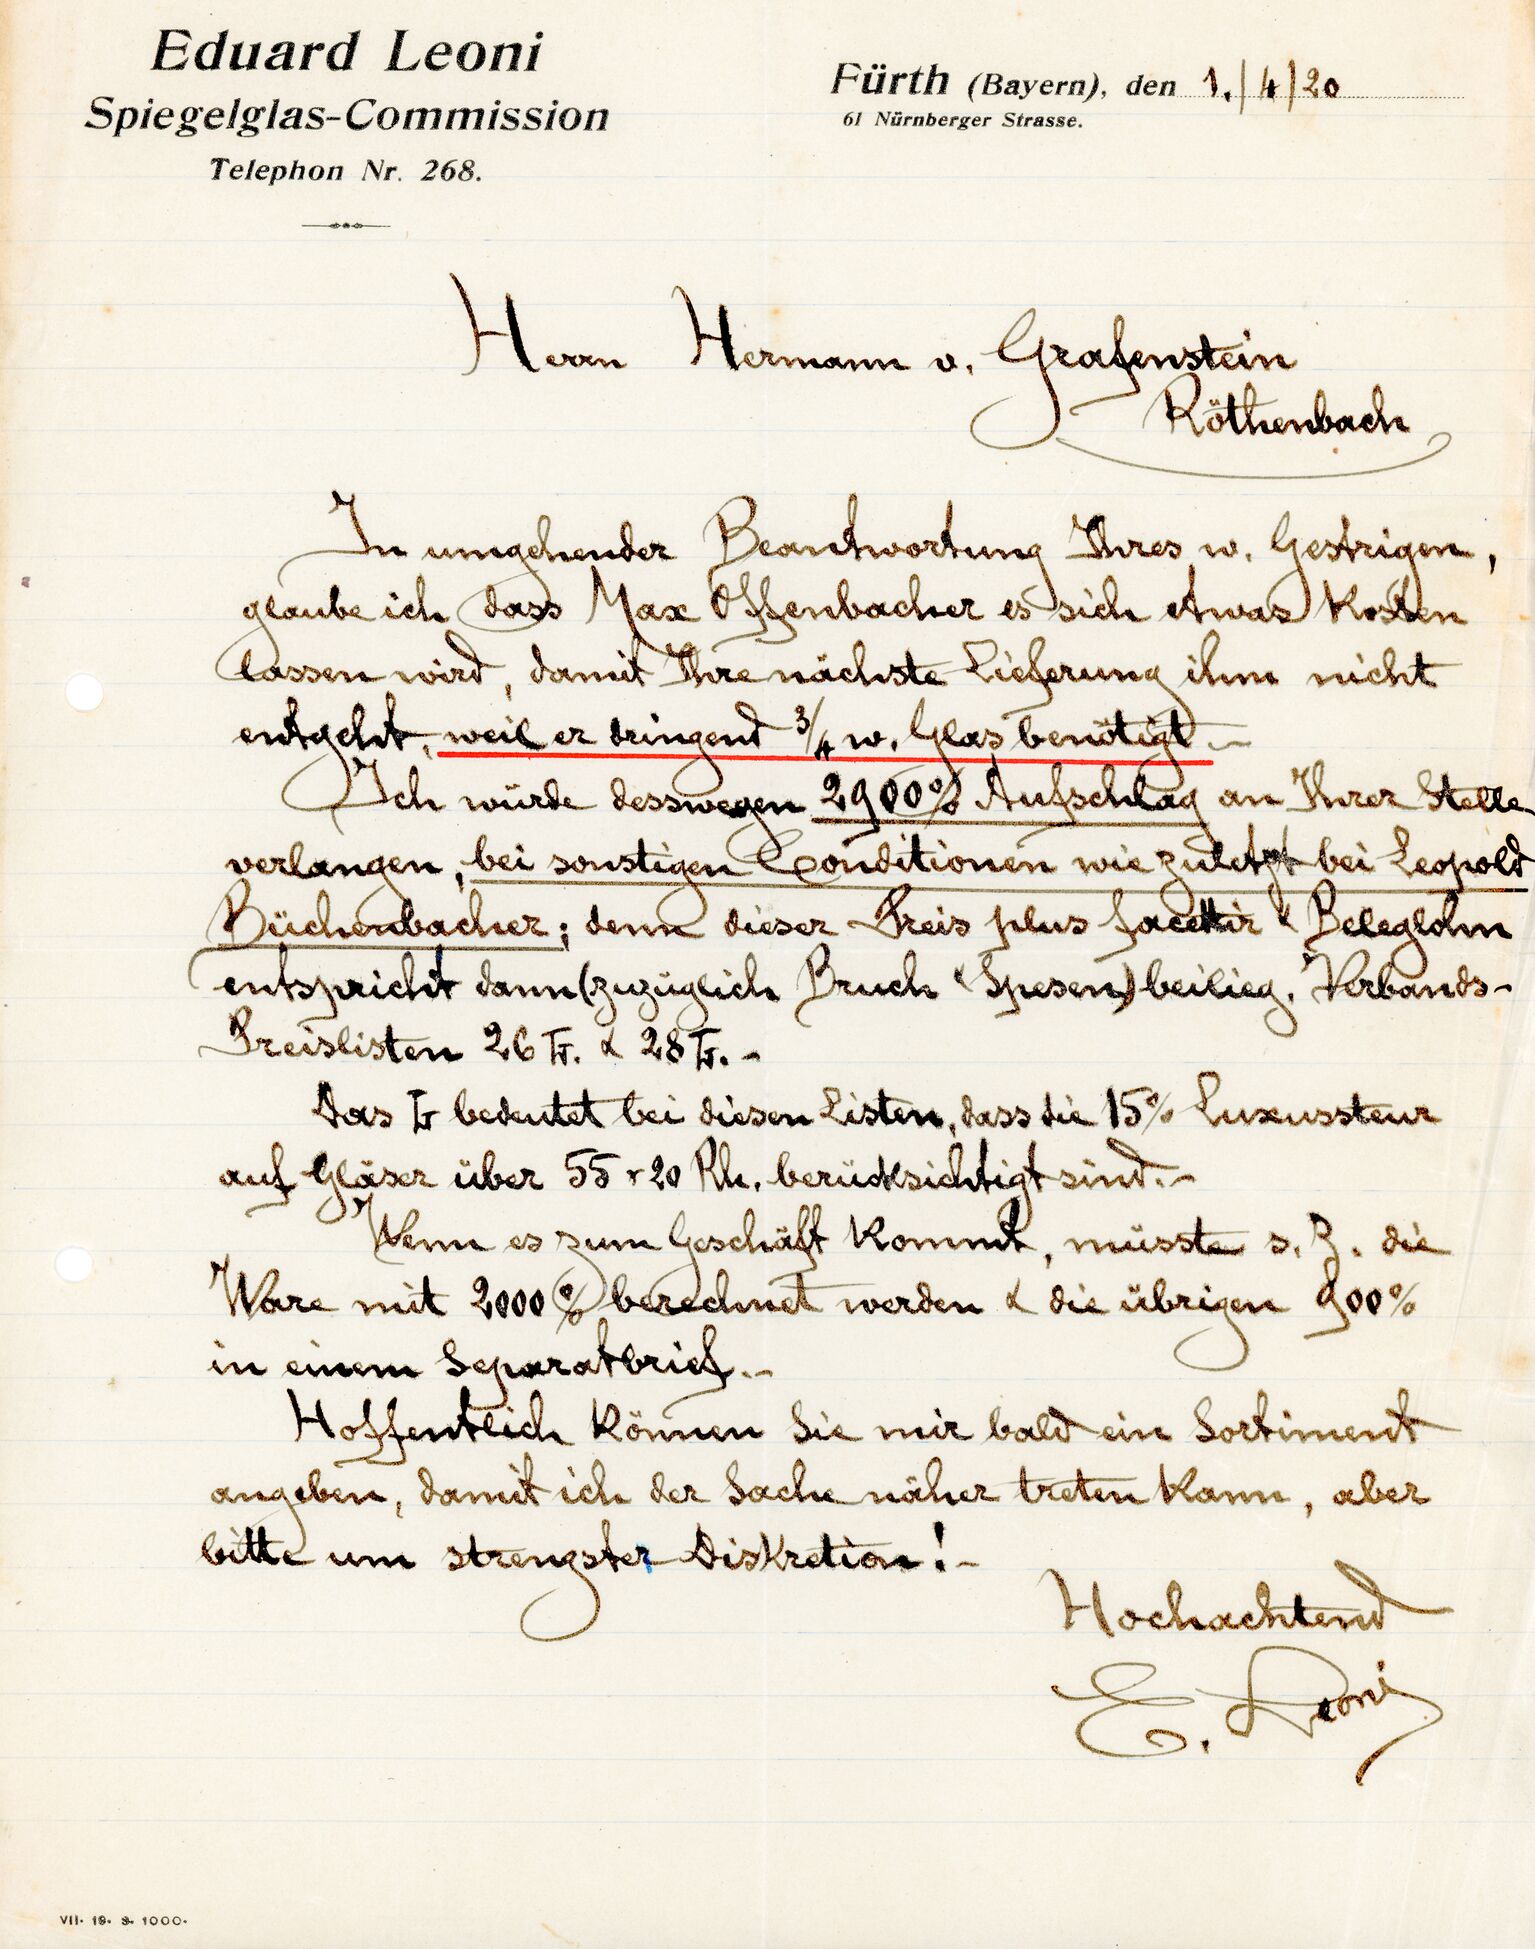 Eduard Leoni
Spiegelglas-Commission
Telephon Nr. 268.
Fürth (Bayern), den 1./4/20
61 Nürnberger Strasse.
Herrn Hermann v. Grafenstein
Röthenbach
In umgehender Beantwortung Ihres w. Gestrigen,
glaube ich dass Max Offenbacher es sich etwas kosten
lassen wird, damit Ihre nächste Lieferung ihm nicht
entgeht, weil er dringend 3/4 w. Glas benötigt.-
Ich würde desswegen 2900% Aufschlag an Ihrer Stelle
verlangen, bei sonstigen Conditionen wie zuletzt bei Leopold
Büchenbacher; denn dieser Preis plus facettir & Beleglohn
entspricht dann (zuzüglich Bruch & Spesen) beilieg. Verbands-
Preislisten 26 Lr. & 28 Lr. -
Das Lr bedeutet bei diesen Listen, dass die 15% Luxussteur
auf Gläser über 55 + 20 Rh. berücksichtigt sind.-
Wenn es zum Geschäft kommt, müsste s. Z. die
Ware mit 2000% berechnet werden & die übrigen 900%
in einem Separatbrief.-
Hoffentlich können Sie mir bald ein Sortiment
angeben, damit ich der Sache näher treten kann, aber
bitte um strengster Diskretion!-
Hochachtend
E. Leoni
VII. 19. 3. 1000.